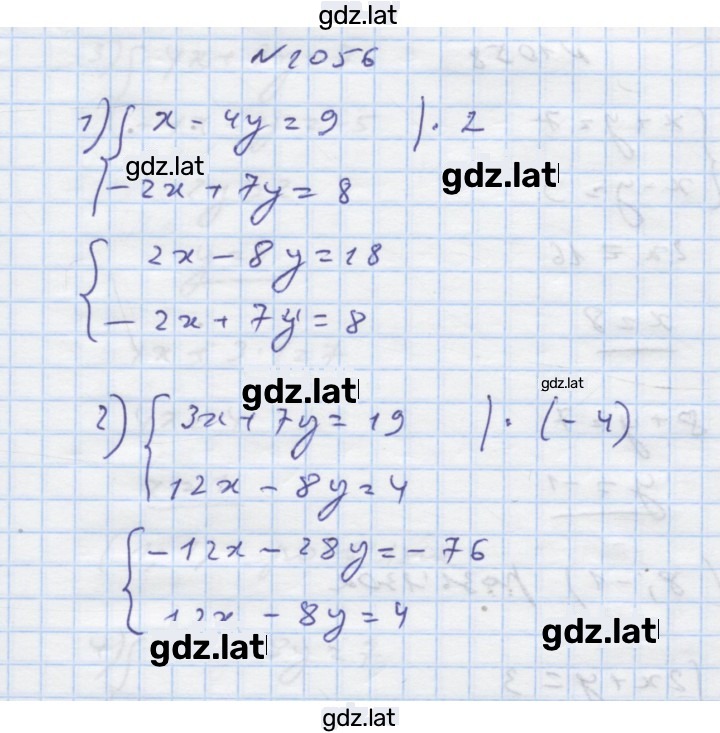 gdz.lat
№ 1056
1) { x - 4y = 9 | · 2
gdz.lat
- 2x + 7y = 8
gdz.lat
{ 2x - 8y = 18
- 2x + 7y = 8
gdz.lat
gdz.lat
2) { 3x + 7y = 19 | · (- 4)
12x - 8y = 4
{ - 12x - 28y = - 76
12x - 8y = 4
gdz.lat
gdz.lat
gdz.lat